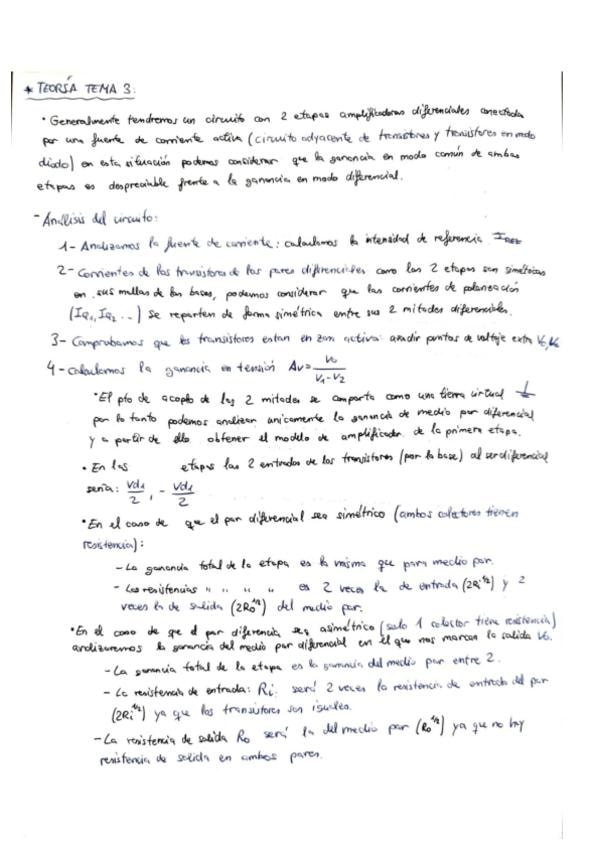 * TEORÍA TEMA 3:
• Generalmente tendremos un circuito con 2 etapas amplificadoras diferenciales conectada
por una fuente de corriente activa (circuito adyacente de transistores y transistores en modo
diodo) en esta situación podemos considerar que la ganancia en modo común de ambas
etapas es despreciable frente a la ganancia en modo diferencial.
- Análisis del circuito:
1- Analizamos la fuente de corriente: calculamos la intensidad de referencia IREF
2- Corrientes de los transistores de los pares diferenciales como las 2 etapas son simétricas
en sus mallas de las bases, podemos considerar que las corrientes de polarización
(IQ1, IQ2 ...) se reparten de forma simétrica entre sus 2 mitades diferenciales.
3- Comprobamos que los transistores estan en zona activa: añadir puntos de voltaje extra
4- Calculamos la ganancia en tensión Av= Vo / V1-V2
• El pto de acoplo de las 2 mitades se comporta como una tierra virtual
por lo tanto podemos analizar unicamente la ganancia de medio par diferencial
y a partir de ello obtener el modelo de amplificador de la primera etapa.
• En las etapas las 2 entradas de los transistores (por la base) al ser diferencial
seria: Vd1/2, - Vd1/2
• En el caso de que el par diferencial sea simétrico (ambos colectores tienen
resistencia):
- La ganancia total de la etapa es la misma que para medio par.
- Las resistencias " " " " es 2 veces la de entrada (2Ri^1/2) y 2
veces la de salida (2Ro^1/2) del medio par.
• En el caso de que el par diferencia sea asimétrico (solo 1 colector tiene resistencia)
analizaremos la ganancia del medio par diferencial en el que nos marcan la salida Vo.
- La ganancia total de la etapa es la ganancia del medio par entre 2.
- La resistencia de entrada: Ri será 2 veces la resistencia de entrada del par
(2Ri^1/2) ya que los transistores son iguales.
- La resistencia de salida Ro será la del medio par (Ro^1/2) ya que no hay
resistencia de salida en ambos pares.